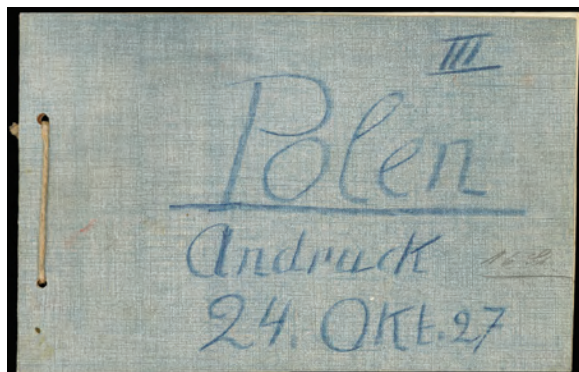 III
Polen
Andruck
24. Okt. 27